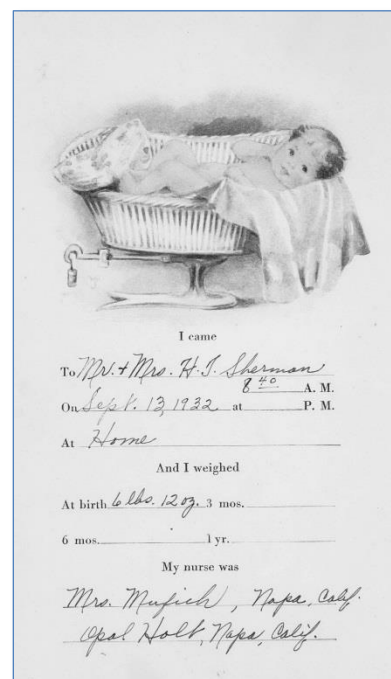 I came
To Mr. + Mrs. H. T. Sherman
8 40 A. M.
On Sept. 13, 1932 at P. M.
At Home
And I weighed
At birth 6 lbs. 12 oz. 3 mos.
6 mos. 1 yr.
My nurse was
Mrs. , Napa, Calif.
Opal Holt, Napa, Calif.